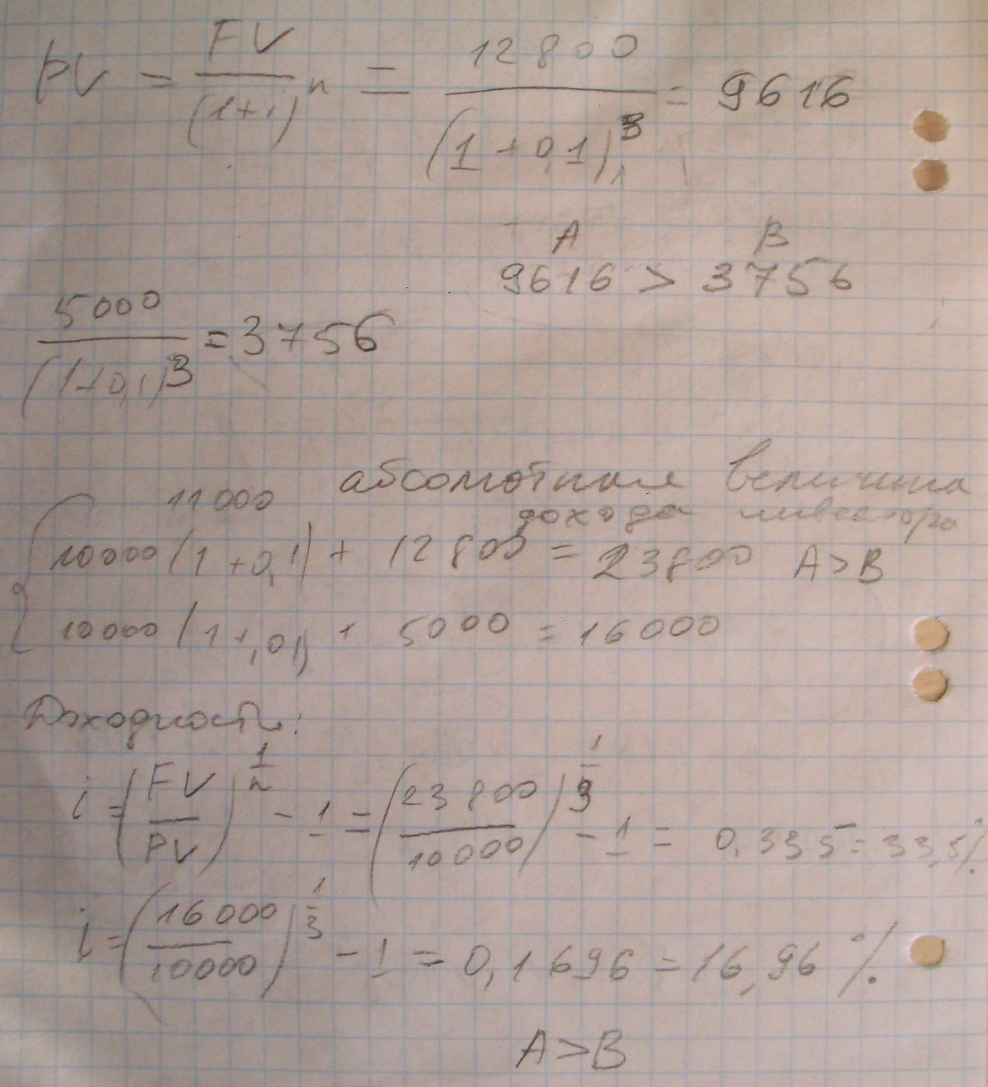 PV = FV / (1+i)^n = 12800 / (1+0,1)^3 = 9616
A B
9616 > 3756
5000 / (1+0,1)^3 = 3756
абсолютная величина
дохода инвестора
11000
10000 (1+0,1) + 12800 = 23800 A>B
10000 (1+,01) + 5000 = 16000
Доходность:
i = (FV / PV)^(1/n) - 1 = (23800 / 10000)^(1/3) - 1 = 0,335 = 33,5%
i = (16000 / 10000)^(1/3) - 1 = 0,1696 = 16,96 %
A>B